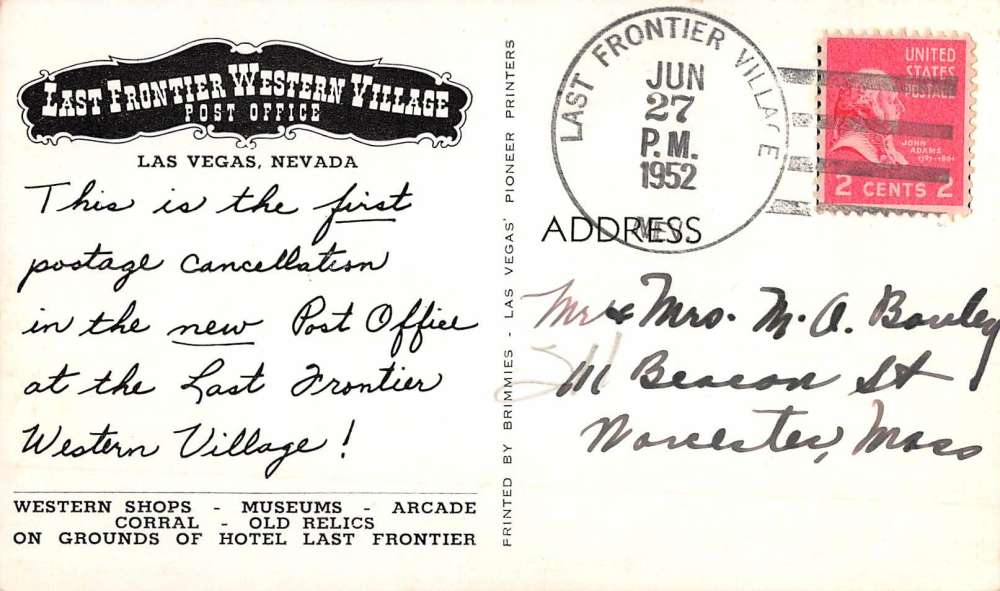 LAST FRONTIER WESTERN VILLAGE
POST OFFICE
LAS VEGAS, NEVADA
This is the first
postage cancellation
in the new Post Office
at the Last Frontier
Western Village!
WESTERN SHOPS - MUSEUMS - ARCADE
CORRAL - OLD RELICS
ON GROUNDS OF HOTEL LAST FRONTIER
PRINTED BY BRIMMIES - LAS VEGAS' PIONEER PRINTERS
LAST FRONTIER VILLAGE
JUN
27
P.M.
1952
NEV.
UNITED
STATES
POSTAGE
JOHN
ADAMS
1797-1801
2 CENTS 2
ADDRESS
Mr & Mrs. M. A. Bowley
111 Beacon St
Worcester, Mass